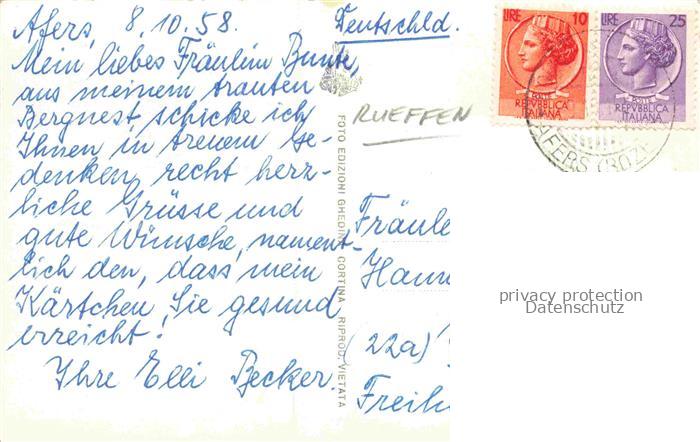 Afers, 8.10.58.
Mein liebes Fräulein Bunte,
aus meinem trauten
Bergnest schicke ich
Ihnen in treuem Ge-
denken recht herz-
liche Grüsse und
gute Wünsche, nament-
lich den, dass mein
Kärtchen Sie gesund
erreicht!
Ihre Elli Becker.
Deutschld.
RUEFFEN
FOTO EDIZIONI GHEDINA CORTINA RIPROD. VIETATA
LIRE 10
POSTE
REPVBBLICA
ITALIANA
LIRE 25
POSTE
REPVBBLICA
ITALIANA
AFERS (BOZ
Fräule
Hann
(22a)
Freih
privacy protection
Datenschutz